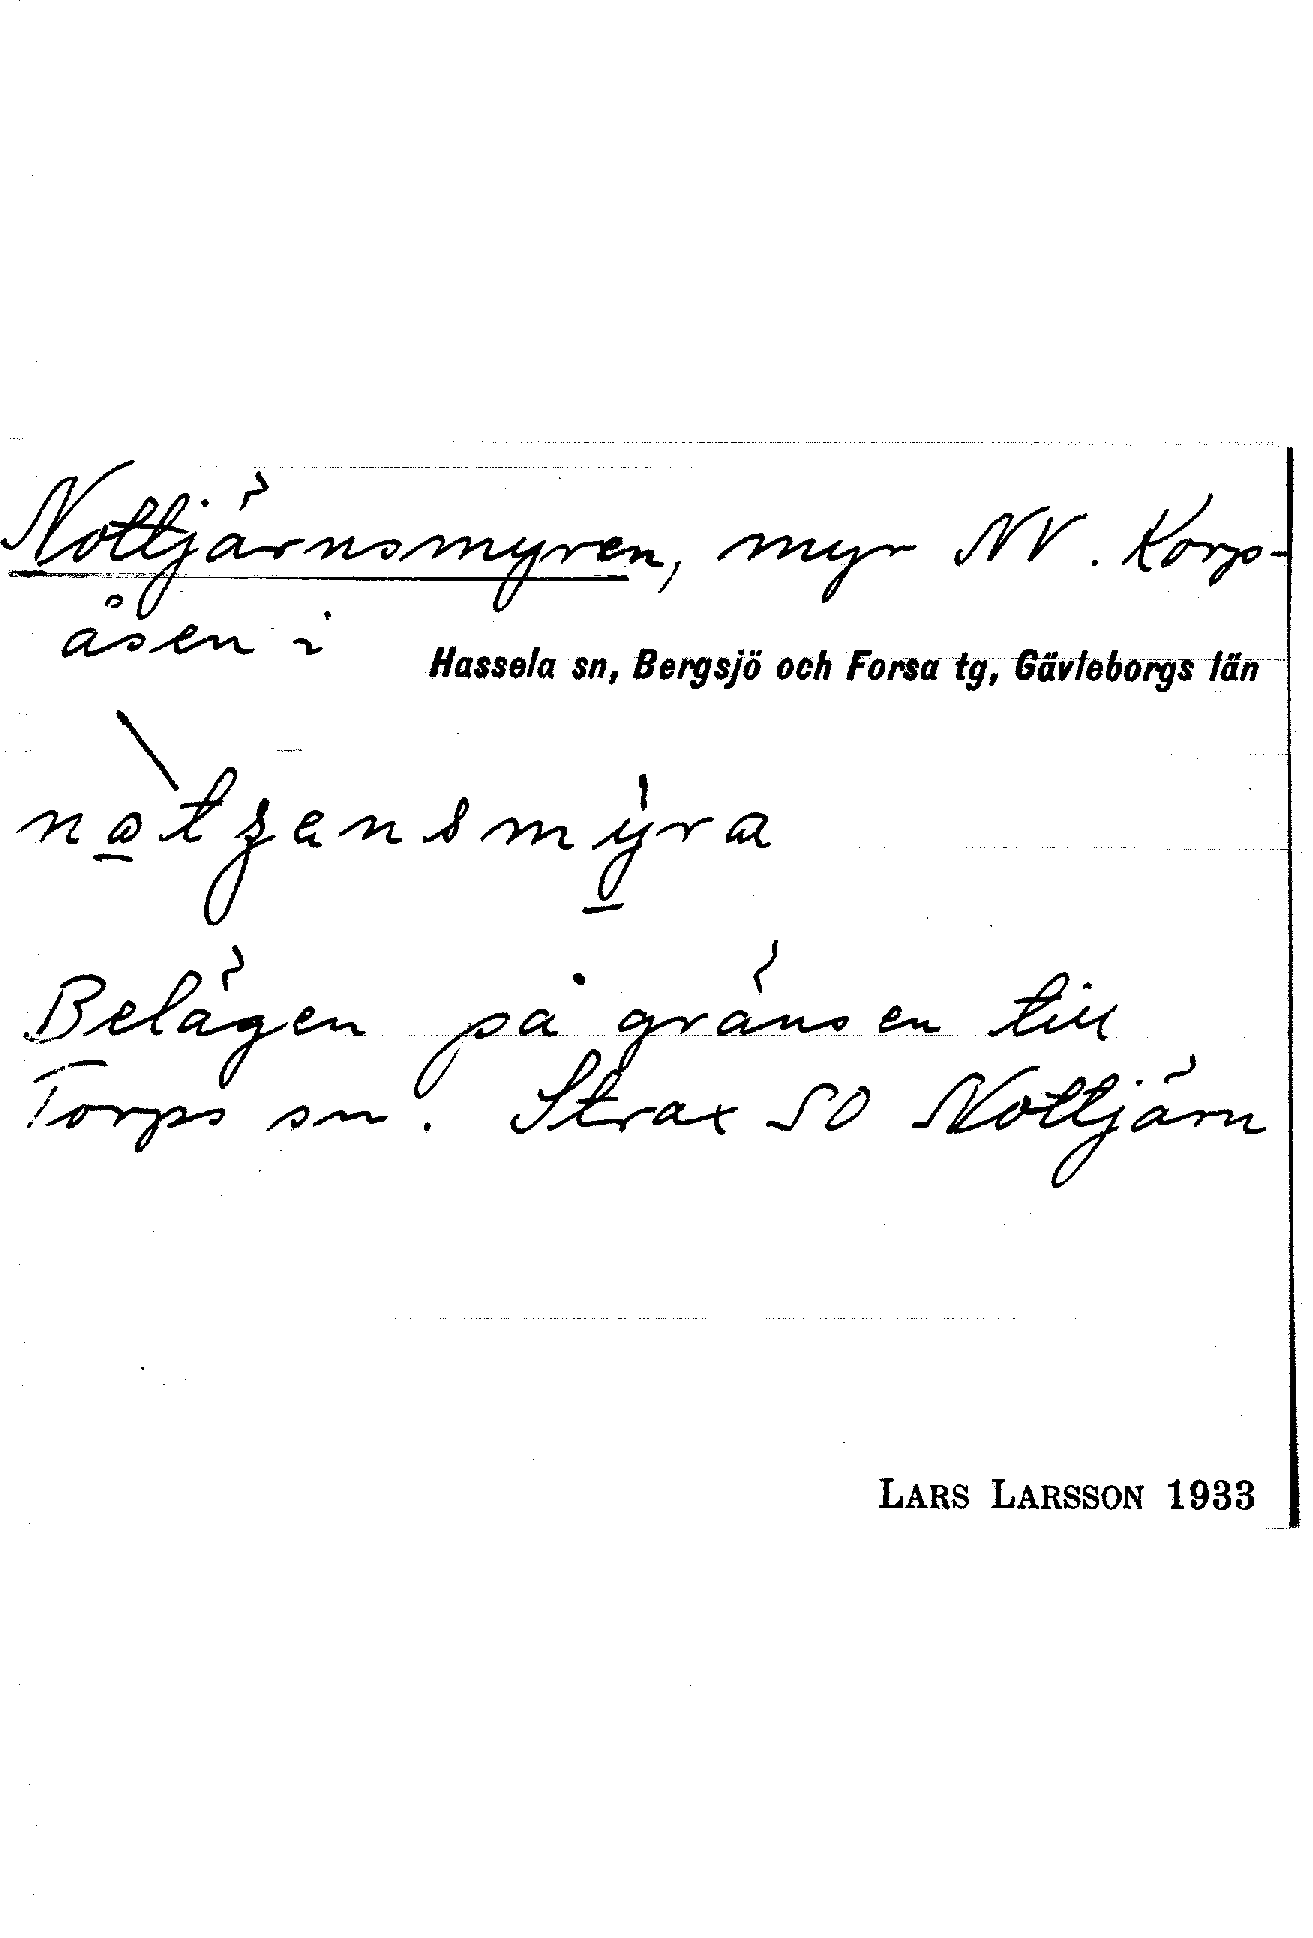 Nottjärnsmyren, myr NV. Korp-
åsen i Hassela sn, Bergsjö och Forsa tg, Gävleborgs län
Belägen på gränsen till
Torps sn. Strax SO Nottjärn
LARS LARSSON 1933